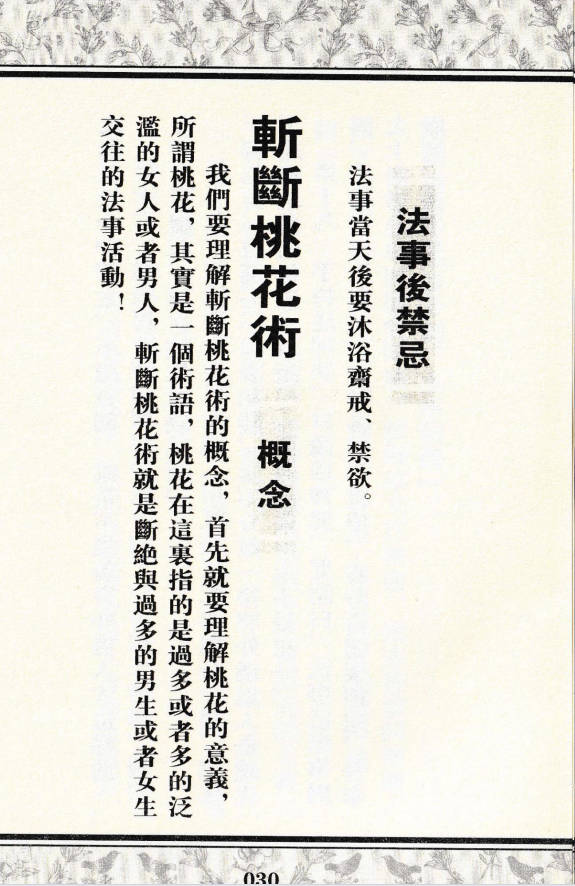 法事後禁忌
法事當天後要沐浴齋戒、禁欲。
斬斷桃花術 概念
我們要理解斬斷桃花術的概念，首先就要理解桃花的意義，
所謂桃花，其實是一個術語，桃花在這裏指的是過多或者多的泛
濫的女人或者男人，斬斷桃花術就是斷絕與過多的男生或者女生
交往的法事活動！
030